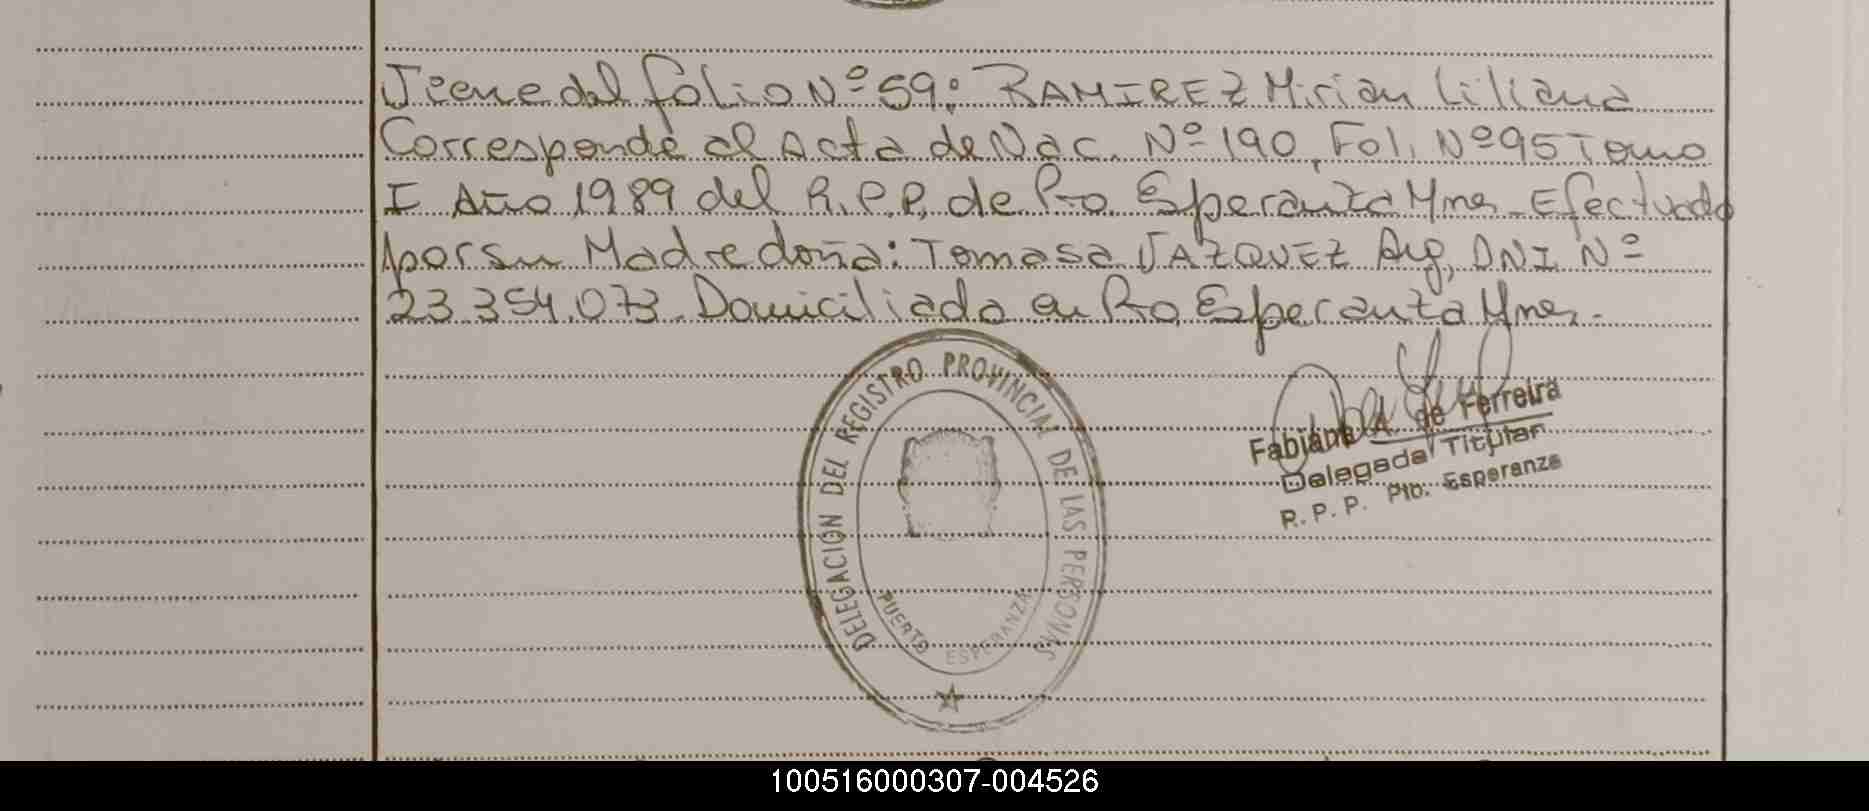 Viene del folio Nº 59: RAMIREZ Mirian Liliana
Corresponde al Acta de Nac. Nº 190, Fol. Nº 95 Tomo
I Año 1989 del R.P.P. de Pto. Esperanza Mnes. Efectuado
por su Madre doña: Tomasa VAZQUEZ Arg, DNI Nº
23.354.073. Domiciliada en Pto. Esperanza Mnes.-
DELEGACION DEL REGISTRO PROVINCIAL DE LAS PERSONAS
PUERTO ESPERANZA
Fabiana A. de Ferreira
Delegada Titular
R.P.P. Pto. Esperanza
100516000307-004526